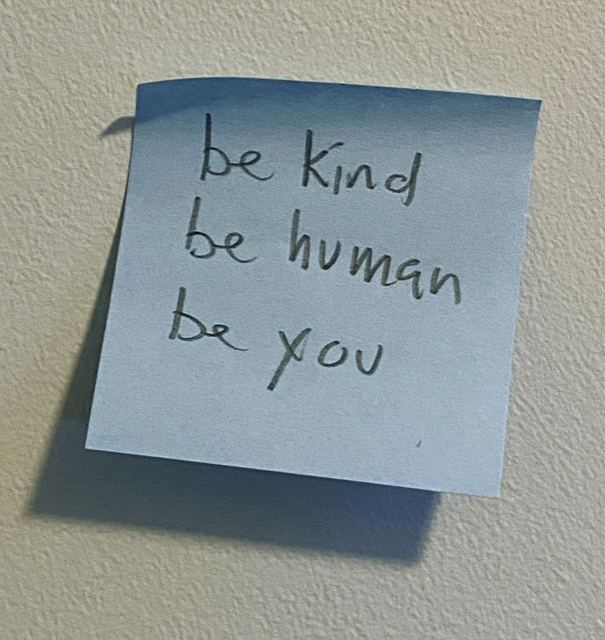 be kind
be human
be you